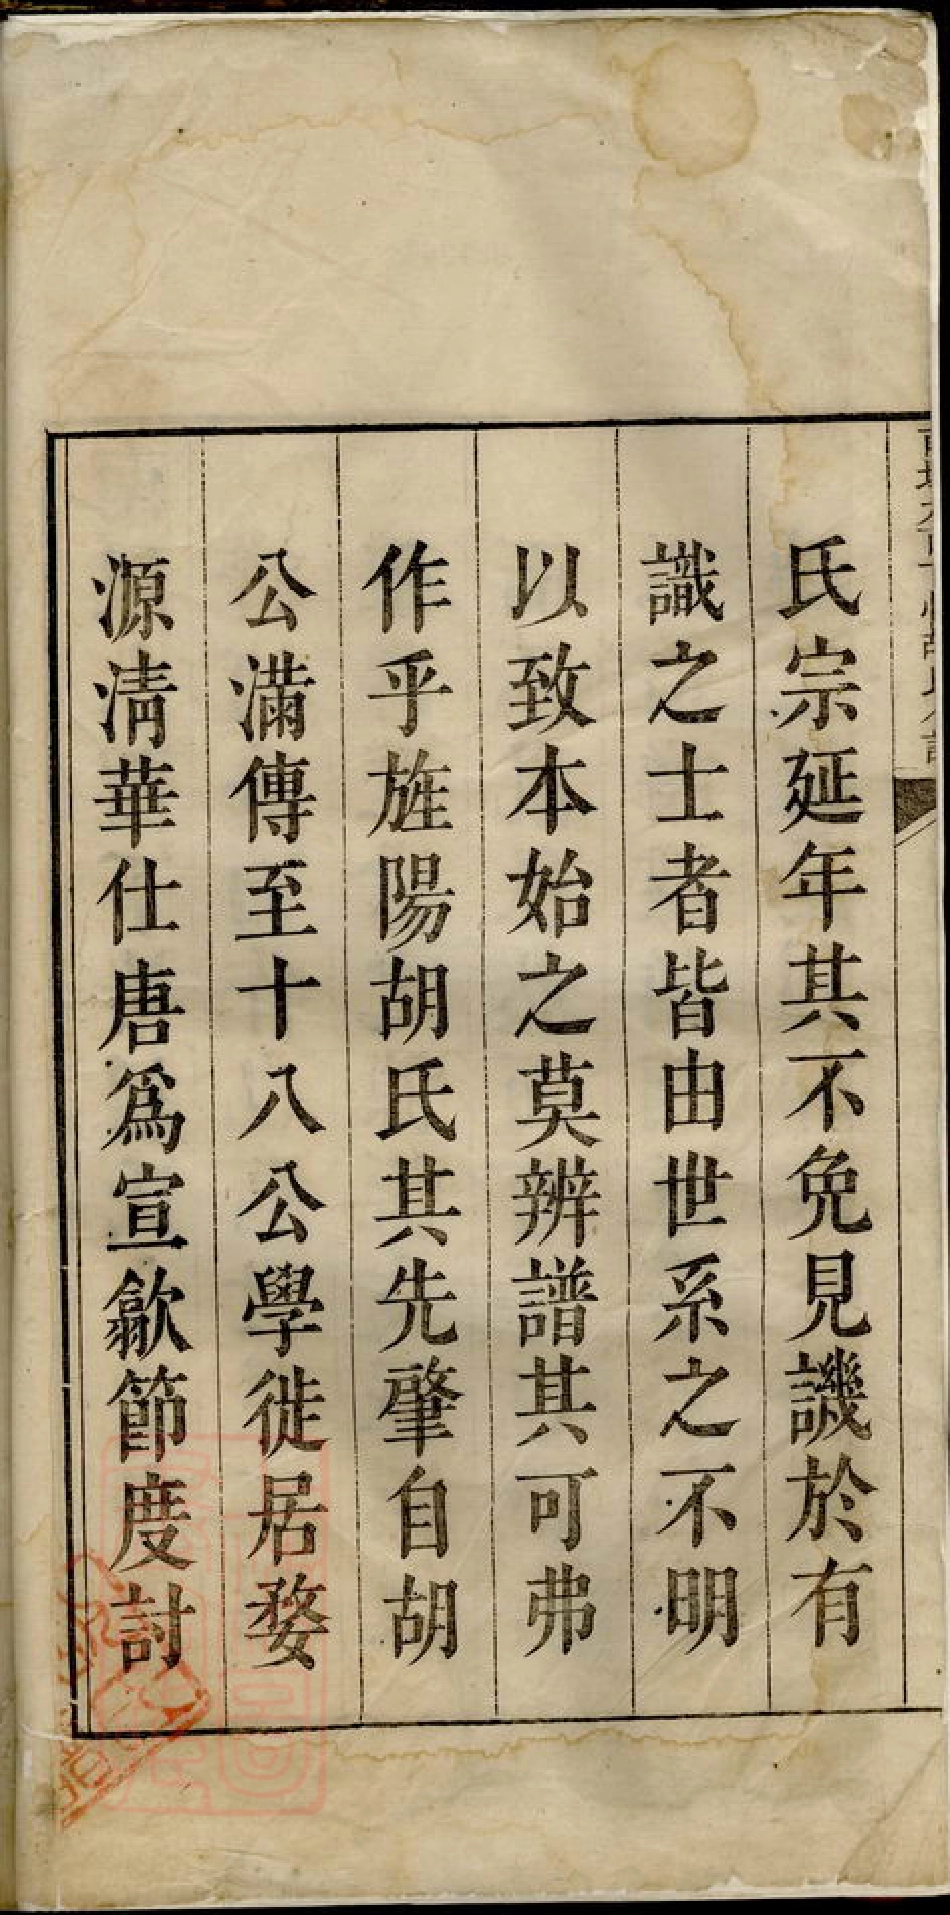 氏宗延年其不免見譏於有
識之士者皆由世系之不明
以致本始之莫辨譜其可弗
作乎旌陽胡氏其先肇自胡
公滿傳至十八公學徙居婺
源淸華仕唐爲宣歙節度討